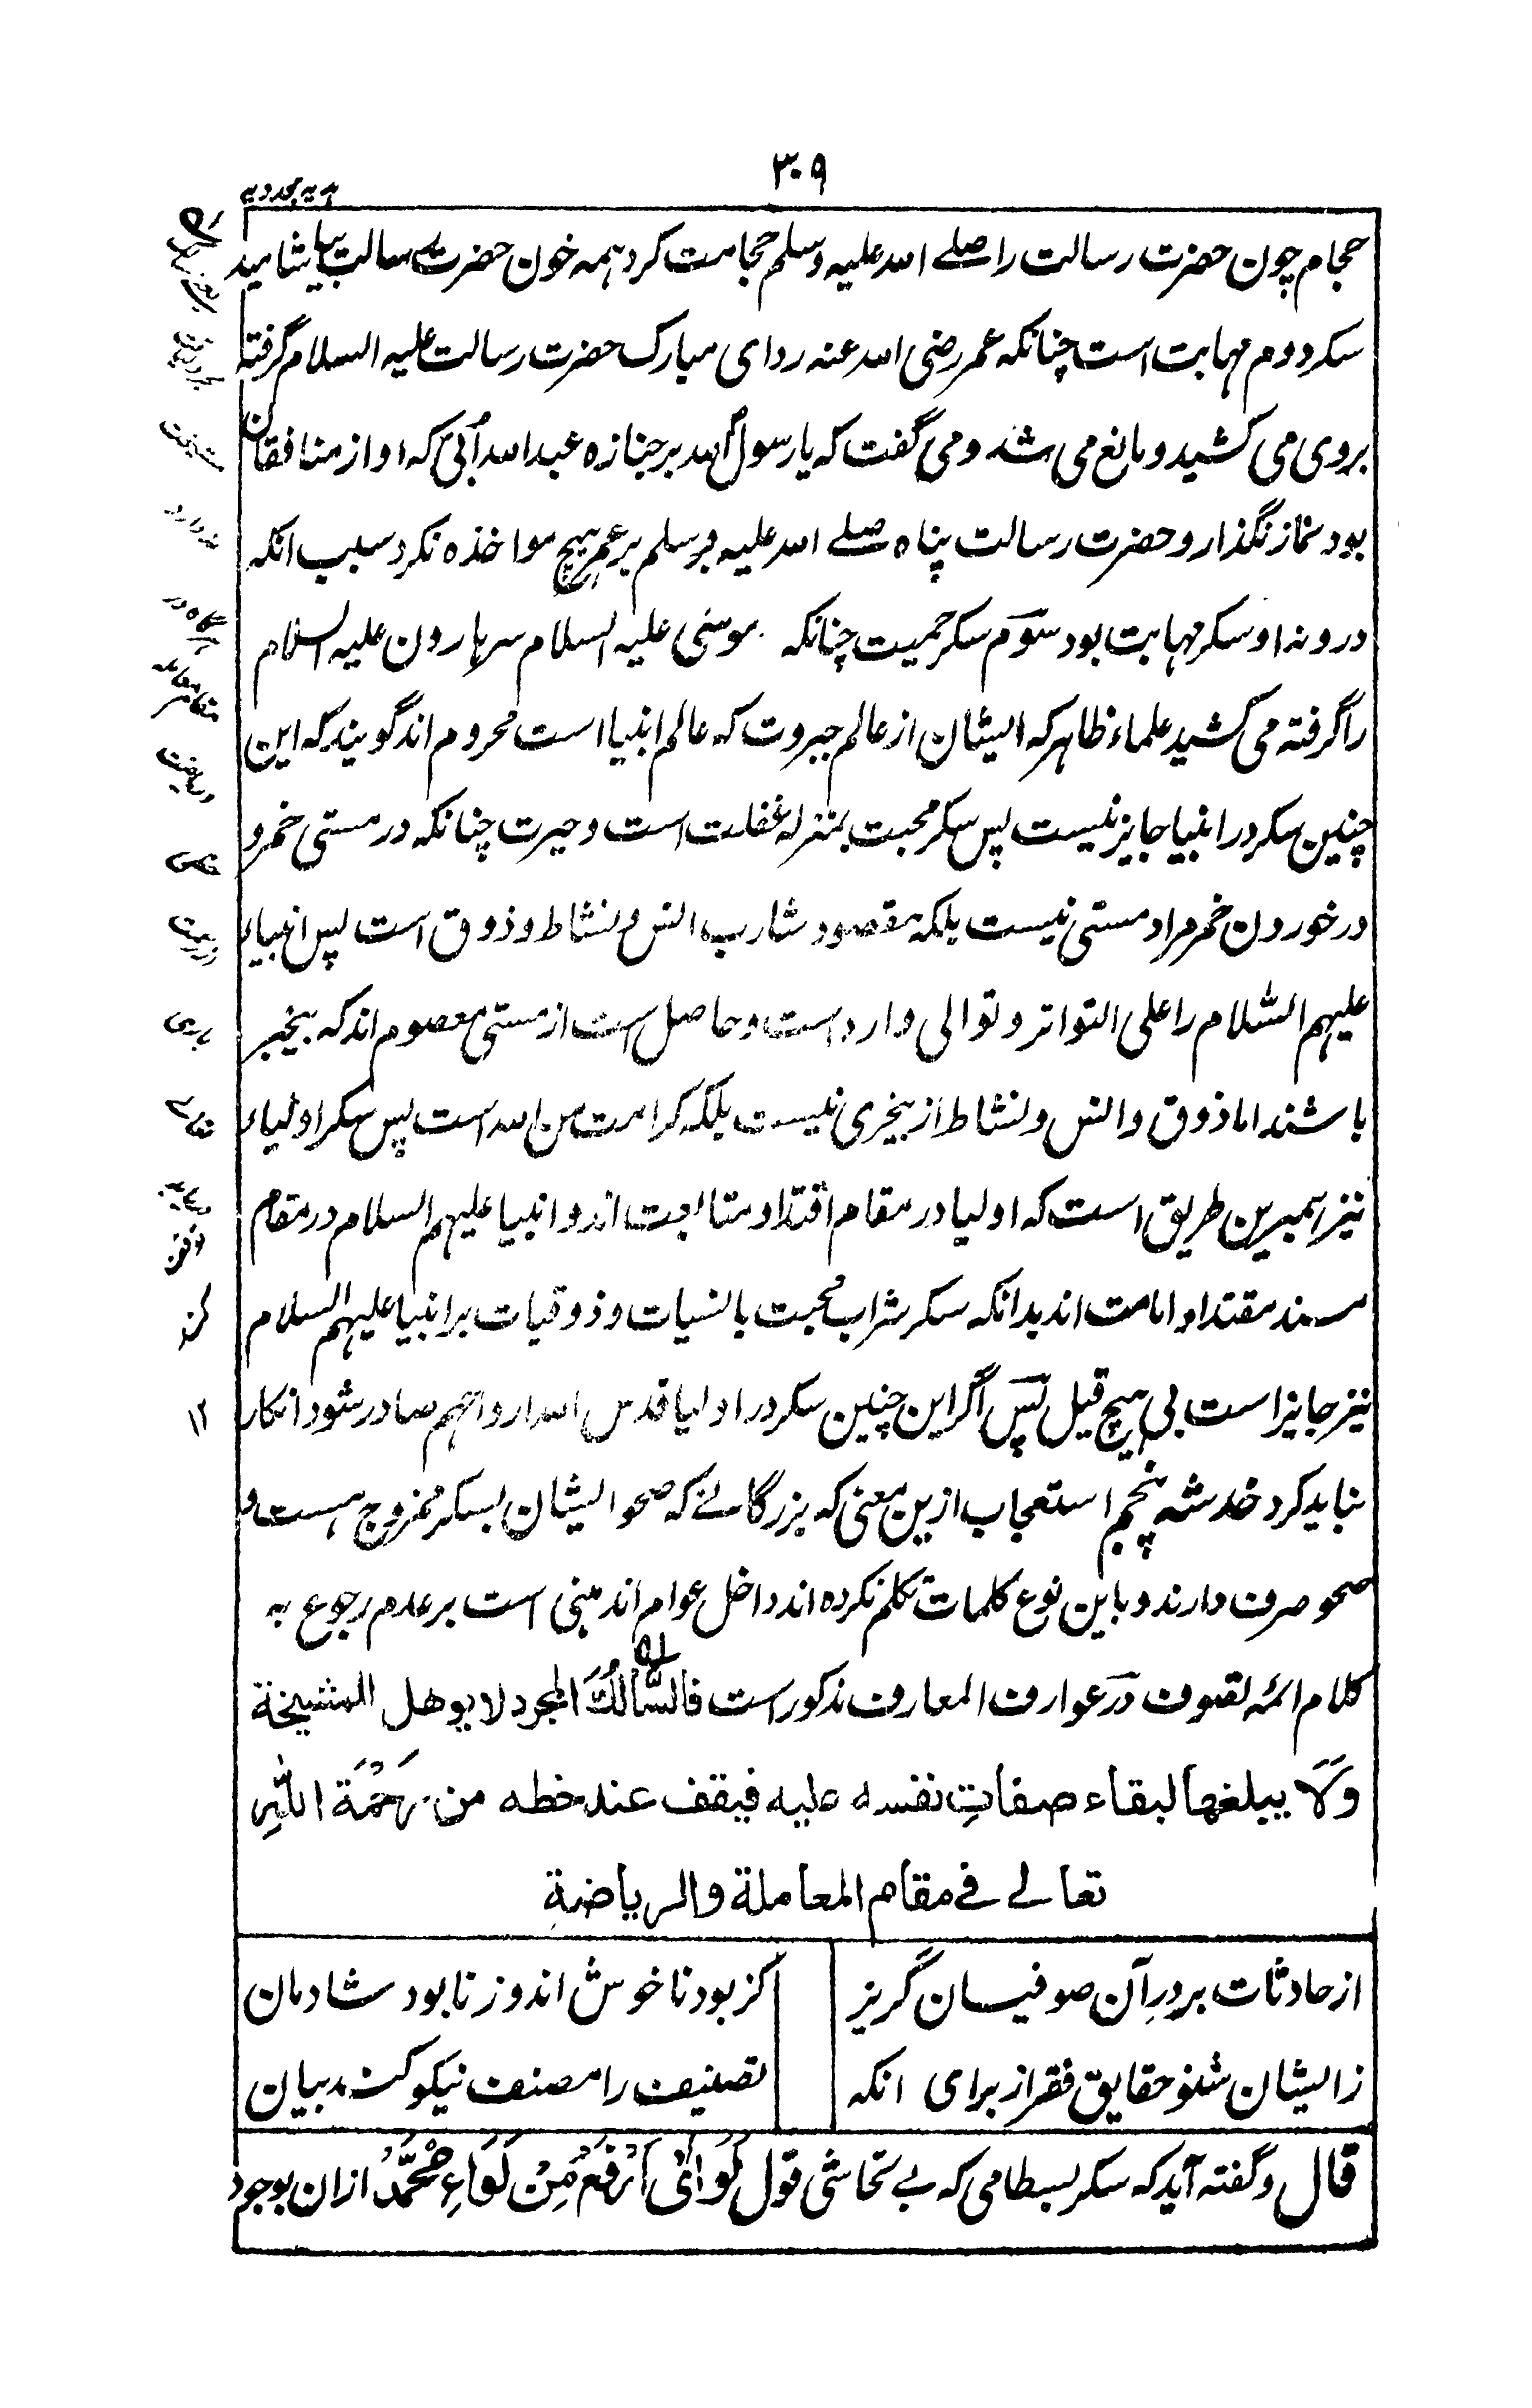 ۳۰۹
ہدیہ مجددیہ
حجام چون حضرت رسالت را صلے اللہ علیہ وسلم حجامت کرد ہمہ خون حضرت رسالت بیاشامید
سکر دوم مہابت است چنانکہ عمر رضی اللہ عنہ ردای مبارک حضرت رسالت علیہ السلام گرفتہ
بروی می کشید و مانع می شد و می گفت کہ یا رسول اللہ بر جنازہ عبد اللہ اُبیّ کہ او از منافقان
بود نماز نگذار و حضرت رسالت پناہ صلے اللہ علیہ وسلم بر عمر ہیچ مواخذہ نکرد سبب انکہ
درونہ او سکر مہابت بود سوم سکر حمیت چنانکہ موسٰی علیہ السلام سر ہارون علیہ السلام
را گرفتہ می کشید علماء ظاہر کہ ایشان از عالم جبروت کہ عالم انبیا است محروم اند گویند کہ این
چنین سکر در انبیا جایز نیست پس سکر محبت بمنزلہ غفلت است و حیرت چنانکہ در مستی خمر و
در خوردن خمر مراد مستی نیست بلکہ مقصود شارب انس و نشاط و ذوق است پس انبیاء
علیہم السّلام را علی التواتر و توالی وارد است و حاصل است از مستی معصوم اند کہ بیخبر
باشند اما ذوق و انس و نشاط از بیخبری نیست بلکہ کرامت من اللہ است پس سکر اولیاء
نیز ہمبرین طریق است کہ اولیا در مقام اقتدا و متابعت اند و انبیا علیہم السلام در مقام
مسند مقتدا و امامت اند بدانکہ سکر شراب محبت بانسیات و ذوقیات بر انبیا علیہم السلام
نیز جایز است بی ہیچ قیل پس اگر این چنین سکر در اولیا قدس اللہ ارواحہم صادر شود انکار
نباید کرد خدشہ پنجم استعجاب ازین معنی کہ بزرگانے کہ صحو ایشان بسکر ممزوج ہست و
صحو صرف دارند و باین نوع کلمات تکلم نکردہ اند داخل عوام اند مبنی است بر عدم رجوع بہ
کلام ائمہ تصوف در عوارف المعارف مذکور است فالسَّالِکُ المجرد لا یوھل للمشیخة
وَلَا یبلغھا لبقاء صفاتِ نفسہ علیہ فیقف عند حظہ من رَحْمَة اللّٰہِ
تعالے فے مقام المعاملة والریاضةِ
از حادثات برورِ آن صوفیان گریز
کز بود ناخوش اند و ز نابود شادمان
ز ایشان شنو حقایق فقر از برای انکہ
تصنیف را مصنف نیکو کند بیان
قال و گفتہ آید کہ سکر بسطامی کہ بے تحاشی قول لَوَائی اَرْفَعُ مِنْ لَوَاءِ مُحَمَّدْ ازان بوجود
مشیخت
ندارد
درگاہ
مقام معاملہ
ریاضت
باری
تعالے
توقف
کند
۱۲